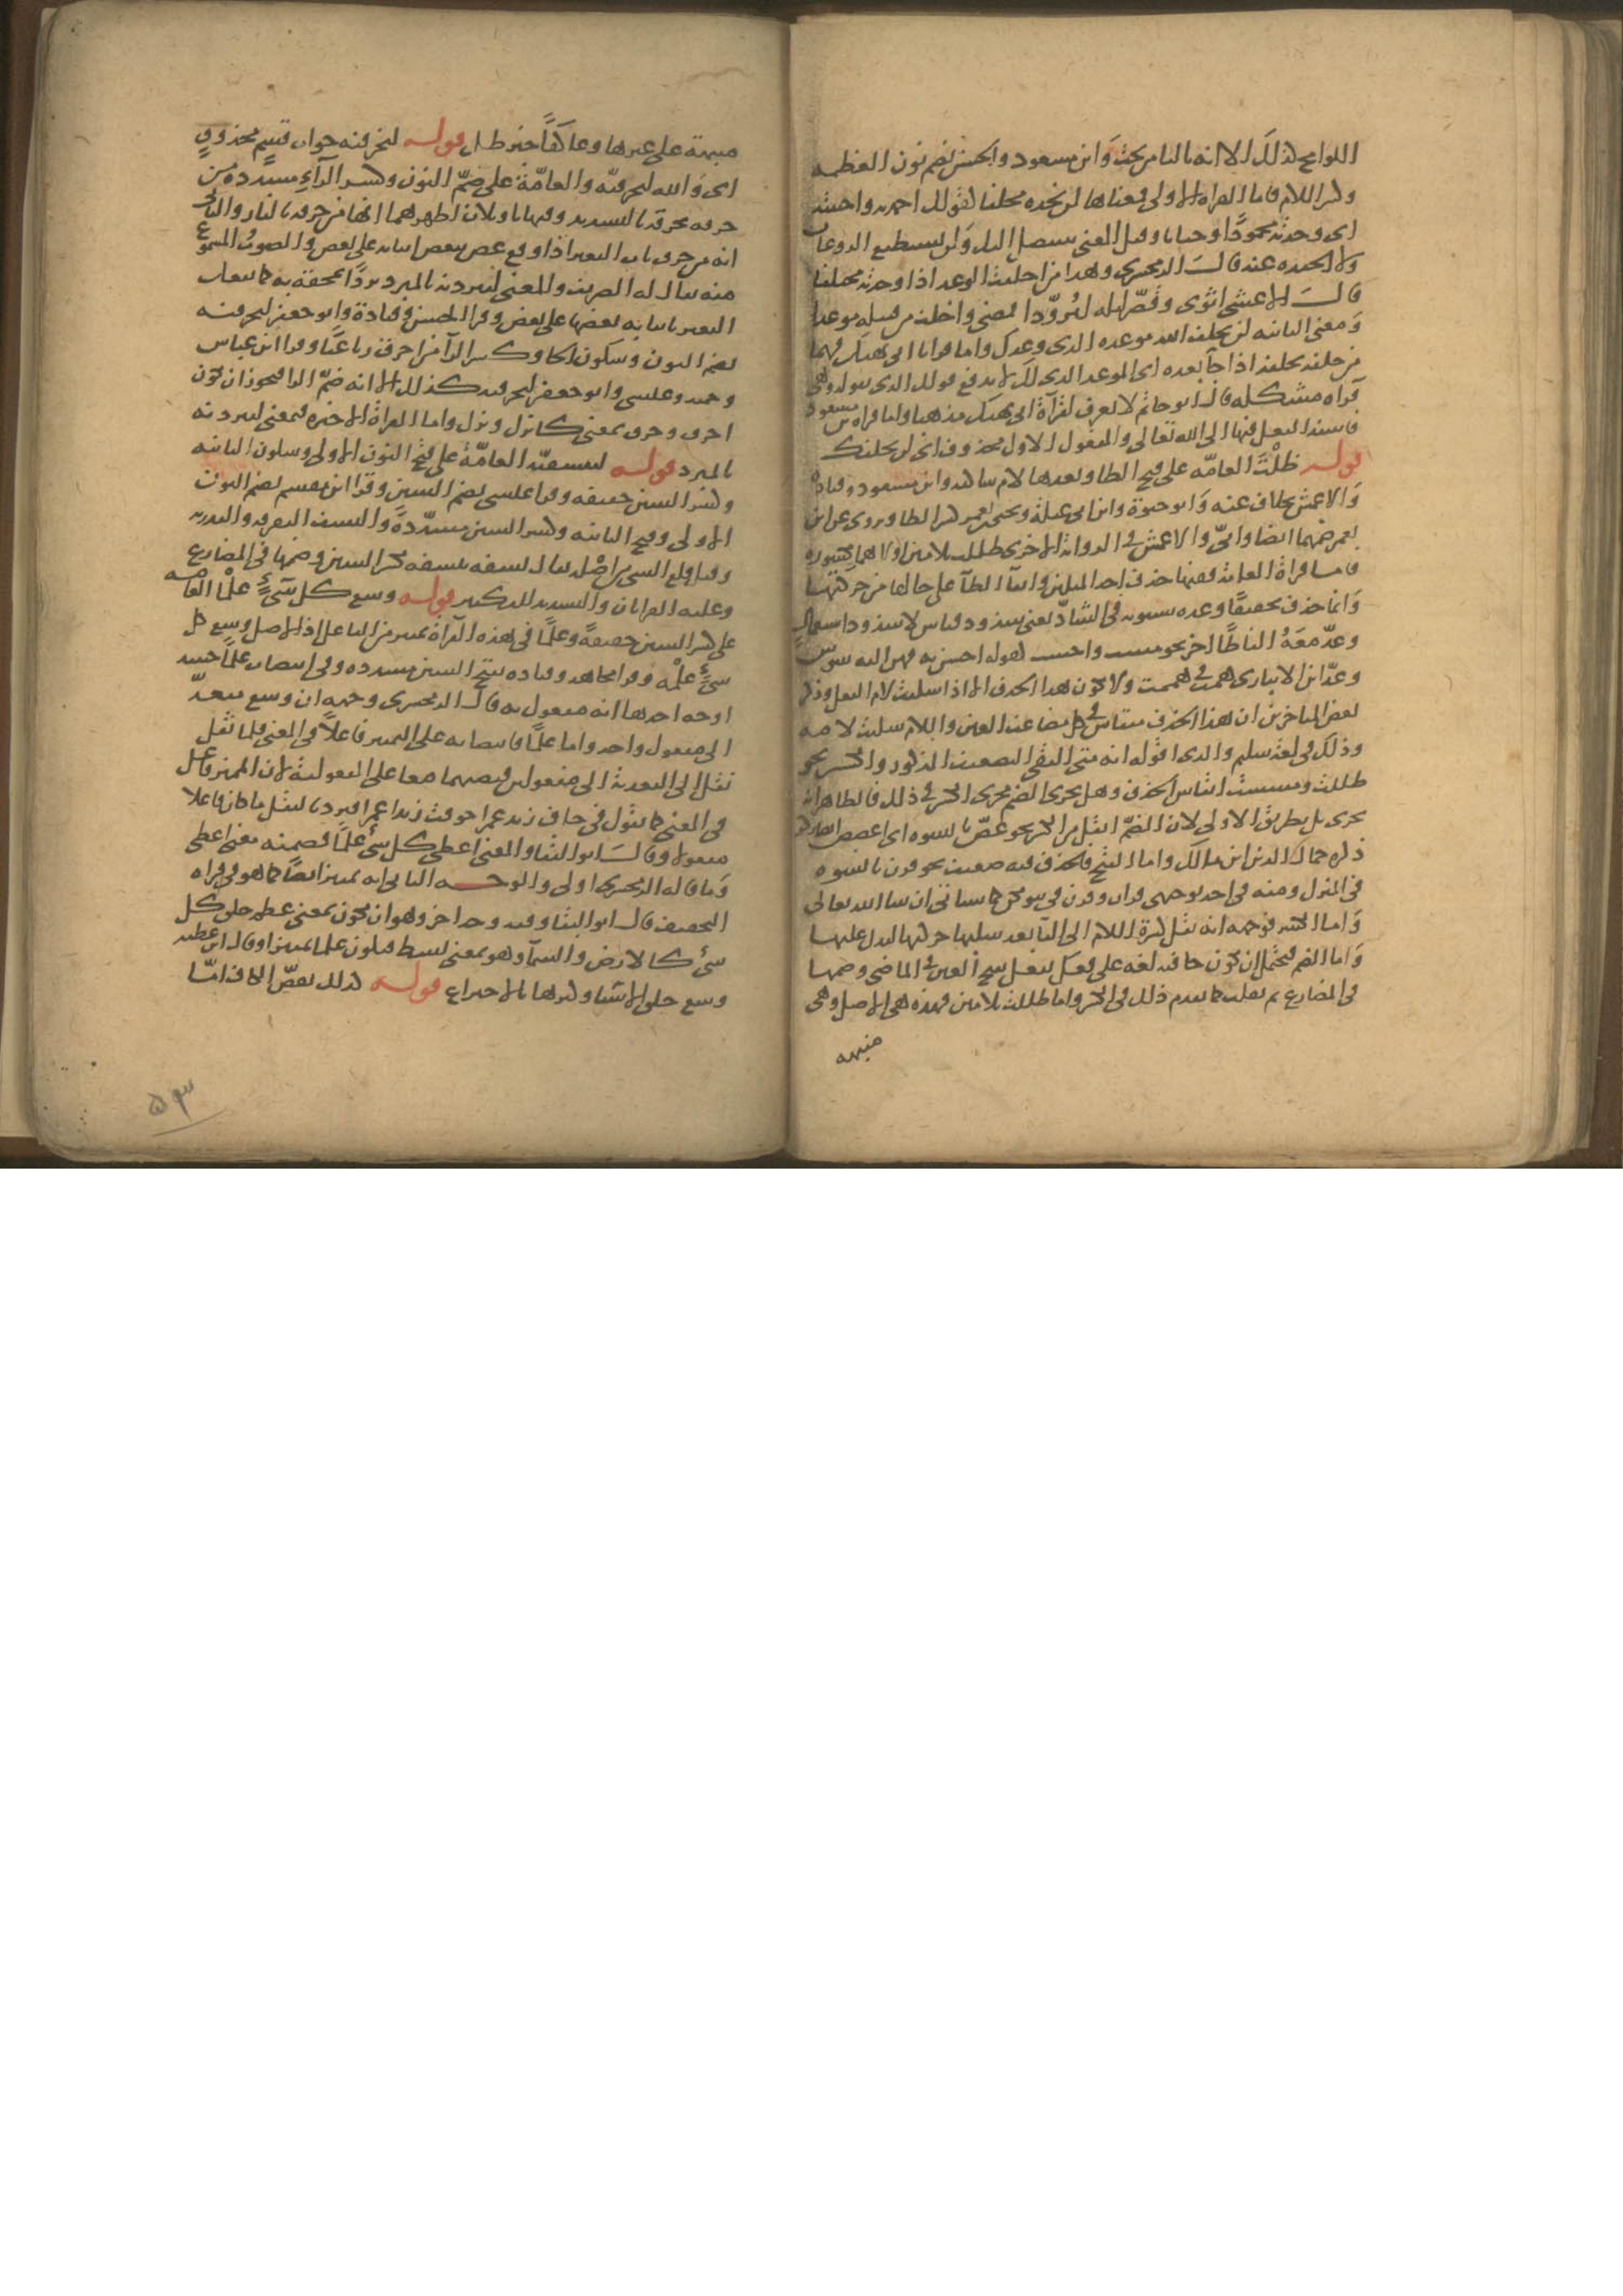 اللوامح لذلك الا انه بالنا من تحت وابن مسعود والحسن بضم نون العظمه
وكسر اللام فاما القراه الاولى فمعناها لن تجده مخلفا كقولك احمدته واحببته
اى وجدته محمودا وجبانا وقيل المعنى سيصل اليك ولن تستطيع الروغان
ولا الحيده عنه قال الزمخشرى وهذا من اخلفت الوعد اذا وجدته مخلفا
قال الاعشى اثوى وقصر ليله ليزودا فمضى واخلف من قتيله موعدا
ومعنى الثانيه لن يخلف الله موعده الذى وعدك واما قراتا ابى نهيك فهما
من خلفه يخلفه اذا جا بعده اى الموعد الذى لك لا يدفع قولك الذى تقوله وهى
قراه مشكله قال ابو حاتم لا يعرف لقراة ابى نهيك مذهبا واما قراه بن مسعود
فاسند الفعل فيها الى الله تعالى والمفعول الاول محذوف اى لن يخلفك
قوله ظلت العامه على فتح الظا وبعدها لام ساكنه وابن مسعود وقتاده
والاعمش بخلاف عنه وابو حيوة وابن ابى عبلة ويحيى بن يعمر كسر الظا وروى عن ابن
يعمر ضمها ايضا وابى والاعمش فى الرواية الاخرى ظللت بلامين اولاهما مكسوره
فاما قراة العامه ففيها حذف احد المثلين وابقا الظا على حالها من حركتها
وانما حذف تخفيفا وعده سيبويه فى الشاذ يعنى شذوذ قياس لا شذوذ استعمال
وعد معه الفاظا اخر نحو مست واحست كقوله احسن به فهن اليه شوس
وعد ابن الانبارى همت فى هممت ولا يكون هذا الحذف الا اذا سكنت لام الفعل وذكر
بعض المتاخرين ان هذا الحذف منقاس فى كل مضاعف العين واللام سكنت لامه
وذلك فى لغة سليم والذى اقوله انه متى التقى التضعيف المذكور والكسر نحو
ظللت ومسست انقاس الحذف وهل يجرى الضم مجرى الكسر فى ذلك فالظاهر انه
يجرى بل بطريق الاولى لان الضم اثقل من الكسر نحو غض يا نسوه اى اغضضن
ذكره جمال الدين ابن مالك واما الفتح فالحذف فيه ضعيف نحو قرن يا نسوه
فى المنزل ومنه فى احد توجيهى قراه وقرن فى بيوتكن كما سياتى ان شا الله تعالى
واما الكسر فوجهه انه نقل كسرة اللام الى الفا بعد سلبها حركتها لتدل عليها
واما الضم فيحتمل ان يكون جا فيه لغه على فعل يفعل بفتح العين فى الماضى وضمها
فى المضارع ثم نقلت كما تقدم ذلك فى الكسر واما ظللت بلامين فهذه هى الاصل وهى
منبهه
منبهة على غيرها وعاكفا خبر ظل قوله لنحرقنه جواب قسم محذوف
اى والله لنحرقنه والعامة على ضم النون وكسر الراء مشدده من
حرقه يحرقه بالتشديد وفيها تاويلان اظهرهما انها من حرقه بالنار والثانى
انه من حرق ناب البعير اذا وقع عض ببعض انيابه على بعض والصوت المسموع
منه يقال له الصريف والمعنى لنبردنه بالمبرد بردا نمحقه به كما يفعل
البعير بانيابه بعضها على بعض وقرا الحسن وقتادة وابو جعفر لنحرقنه
بضم النون وسكون الحا وكسر الرا من احرق رباعيا وقرا ابن عباس
وحميد وعيسى وابو جعفر لنحرقنه كذلك الا انه ضم الرا فيجوز ان يكون
احرق وحرق بمعنى كانزل ونزل واما القراة الاخيره فبمعنى لنبردنه
بالمبرد قوله لننسفنه العامة على فتح النون الاولى وسكون الثانيه
وكسر السين خفيفه وقرا عيسى بضم السين وقرا ابن مقسم بضم النون
الاولى وفتح الثانيه وكسر السين مشددة والنسف التفرقه والتذريه
وقيل قلع الشى من اصله يقال نسفه ينسفه بكسر السين وضمها فى المضارع
وعليه القراتان والتشديد للتكثير قوله وسع كل شىء علما العامه
على كسر السين خفيفة وعلما فى هذه القراة تمييز من الفاعل اذ الاصل وسع كل
شىء علمه وقرا مجاهد وقتاده بفتح السين مشدده وفى انتصاب علما حينئذ
اوجه احدها انه مفعول به قال الزمخشرى وجهه ان وسع متعد
الى مفعول واحد واما علما فانتصابه على التمييز فاعلا فى المعنى فلما ثقل
نقل الى التعدية الى مفعولين فنصبهما معا على المفعولية لان المميز فاعل
فى المعنى كما تقول فى خاف زيد عمرا خوفت زيدا عمرا فترد بالنقل ما كان فاعلا
مفعولا وقال ابو البقا والمعنى اعطى كل شى علما فضمنه معنى اعطى
وما قاله الزمخشرى اولى والوجه الثانى انه تمييز ايضا كما هو فى قراه
التخفيف قال ابو البقا وفيه وجه اخر وهو ان يكون بمعنى عظم خلق كل
شى كالارض والسما وهو بمعنى بسط فيكون علما تمييزا وقال ابن عطيه
وسع خلق الاشيا وكثرها بالاختراع قوله كذلك نقص الكاف اما
٥٣